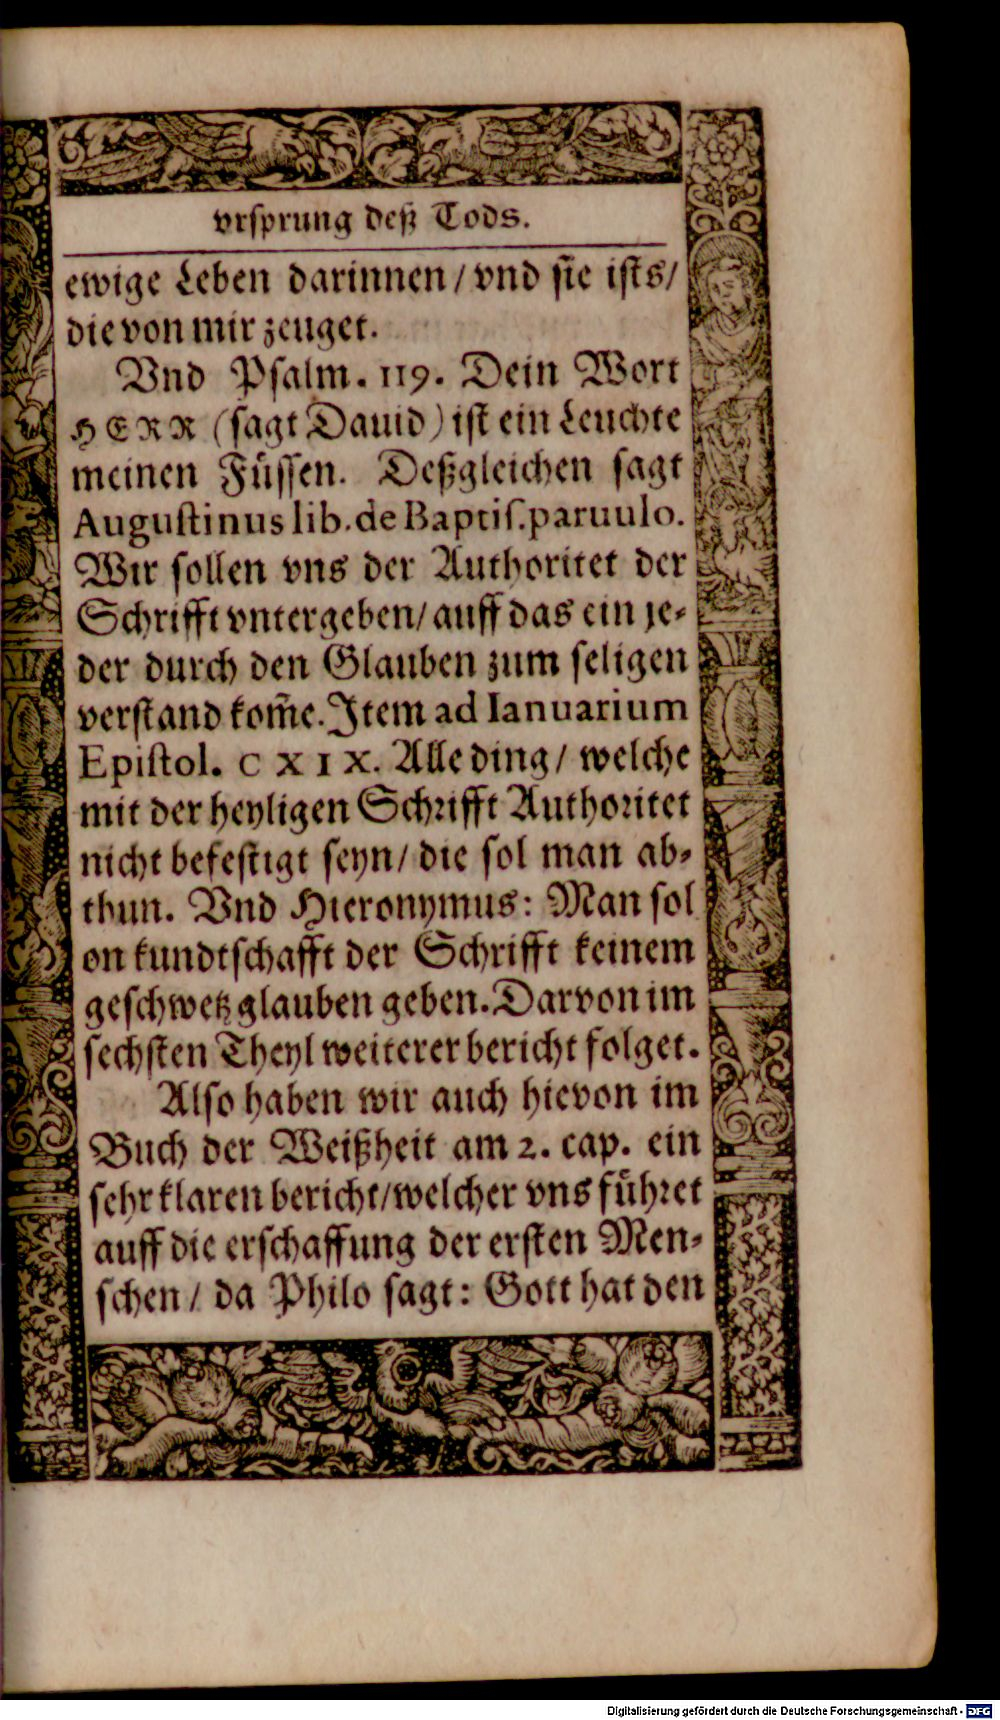 vrsprung deß Tods.
ewige Leben darinnen / vnd sie ists /
die von mir zeuget.
Vnd Psalm. 119. Dein Wort
HERR (sagt Dauid) ist ein Leuchte
meinen Füssen. Deßgleichen sagt
Augustinus lib. de Baptis. paruulo.
Wir sollen vns der Authoritet der
Schrifft vntergeben / auff das ein je-
der durch den Glauben zum seligen
verstand kom̃e. Item ad Ianuarium
Epistol. CXIX. Alle ding / welche
mit der heyligen Schrifft Authoritet
nicht befestigt seyn / die sol man ab-
thun. Vnd Hieronymus: Man sol
on kundtschafft der Schrifft keinem
geschwetz glauben geben. Darvon im
sechsten Theyl weiterer bericht folget.
Also haben wir auch hievon im
Buch der Weißheit am 2. cap. ein
sehr klaren bericht / welcher vns führet
auff die erschaffung der ersten Men-
schen / da Philo sagt: Gott hat den
Digitalisierung gefördert durch die Deutsche Forschungsgemeinschaft - DFG